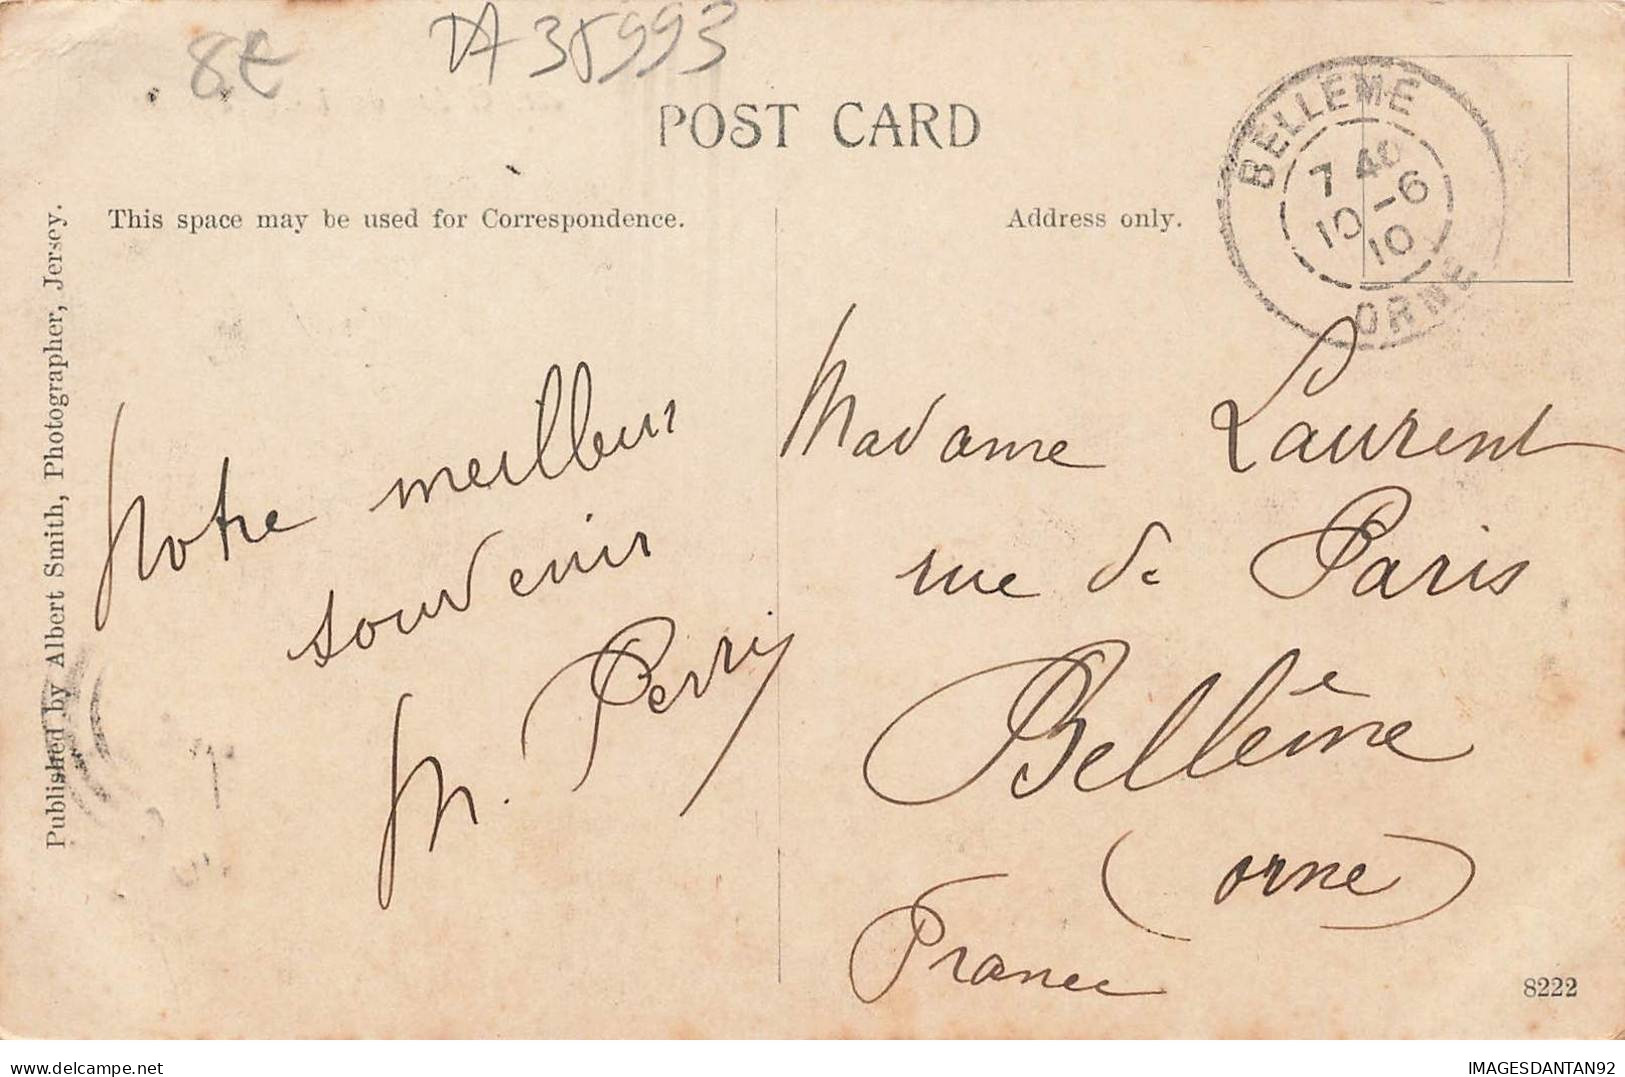 8€
TA 35993
POST CARD
This space may be used for Correspondence.
Address only.
BELLEME
7 40
10 - 6
10
ORNE
Published by Albert Smith, Photographer, Jersey.
Notre meilleur
souvenir
M. Perry
Madame Laurent
rue de Paris
Bellême
(orne)
France
8222
IMAGESDANTAN92